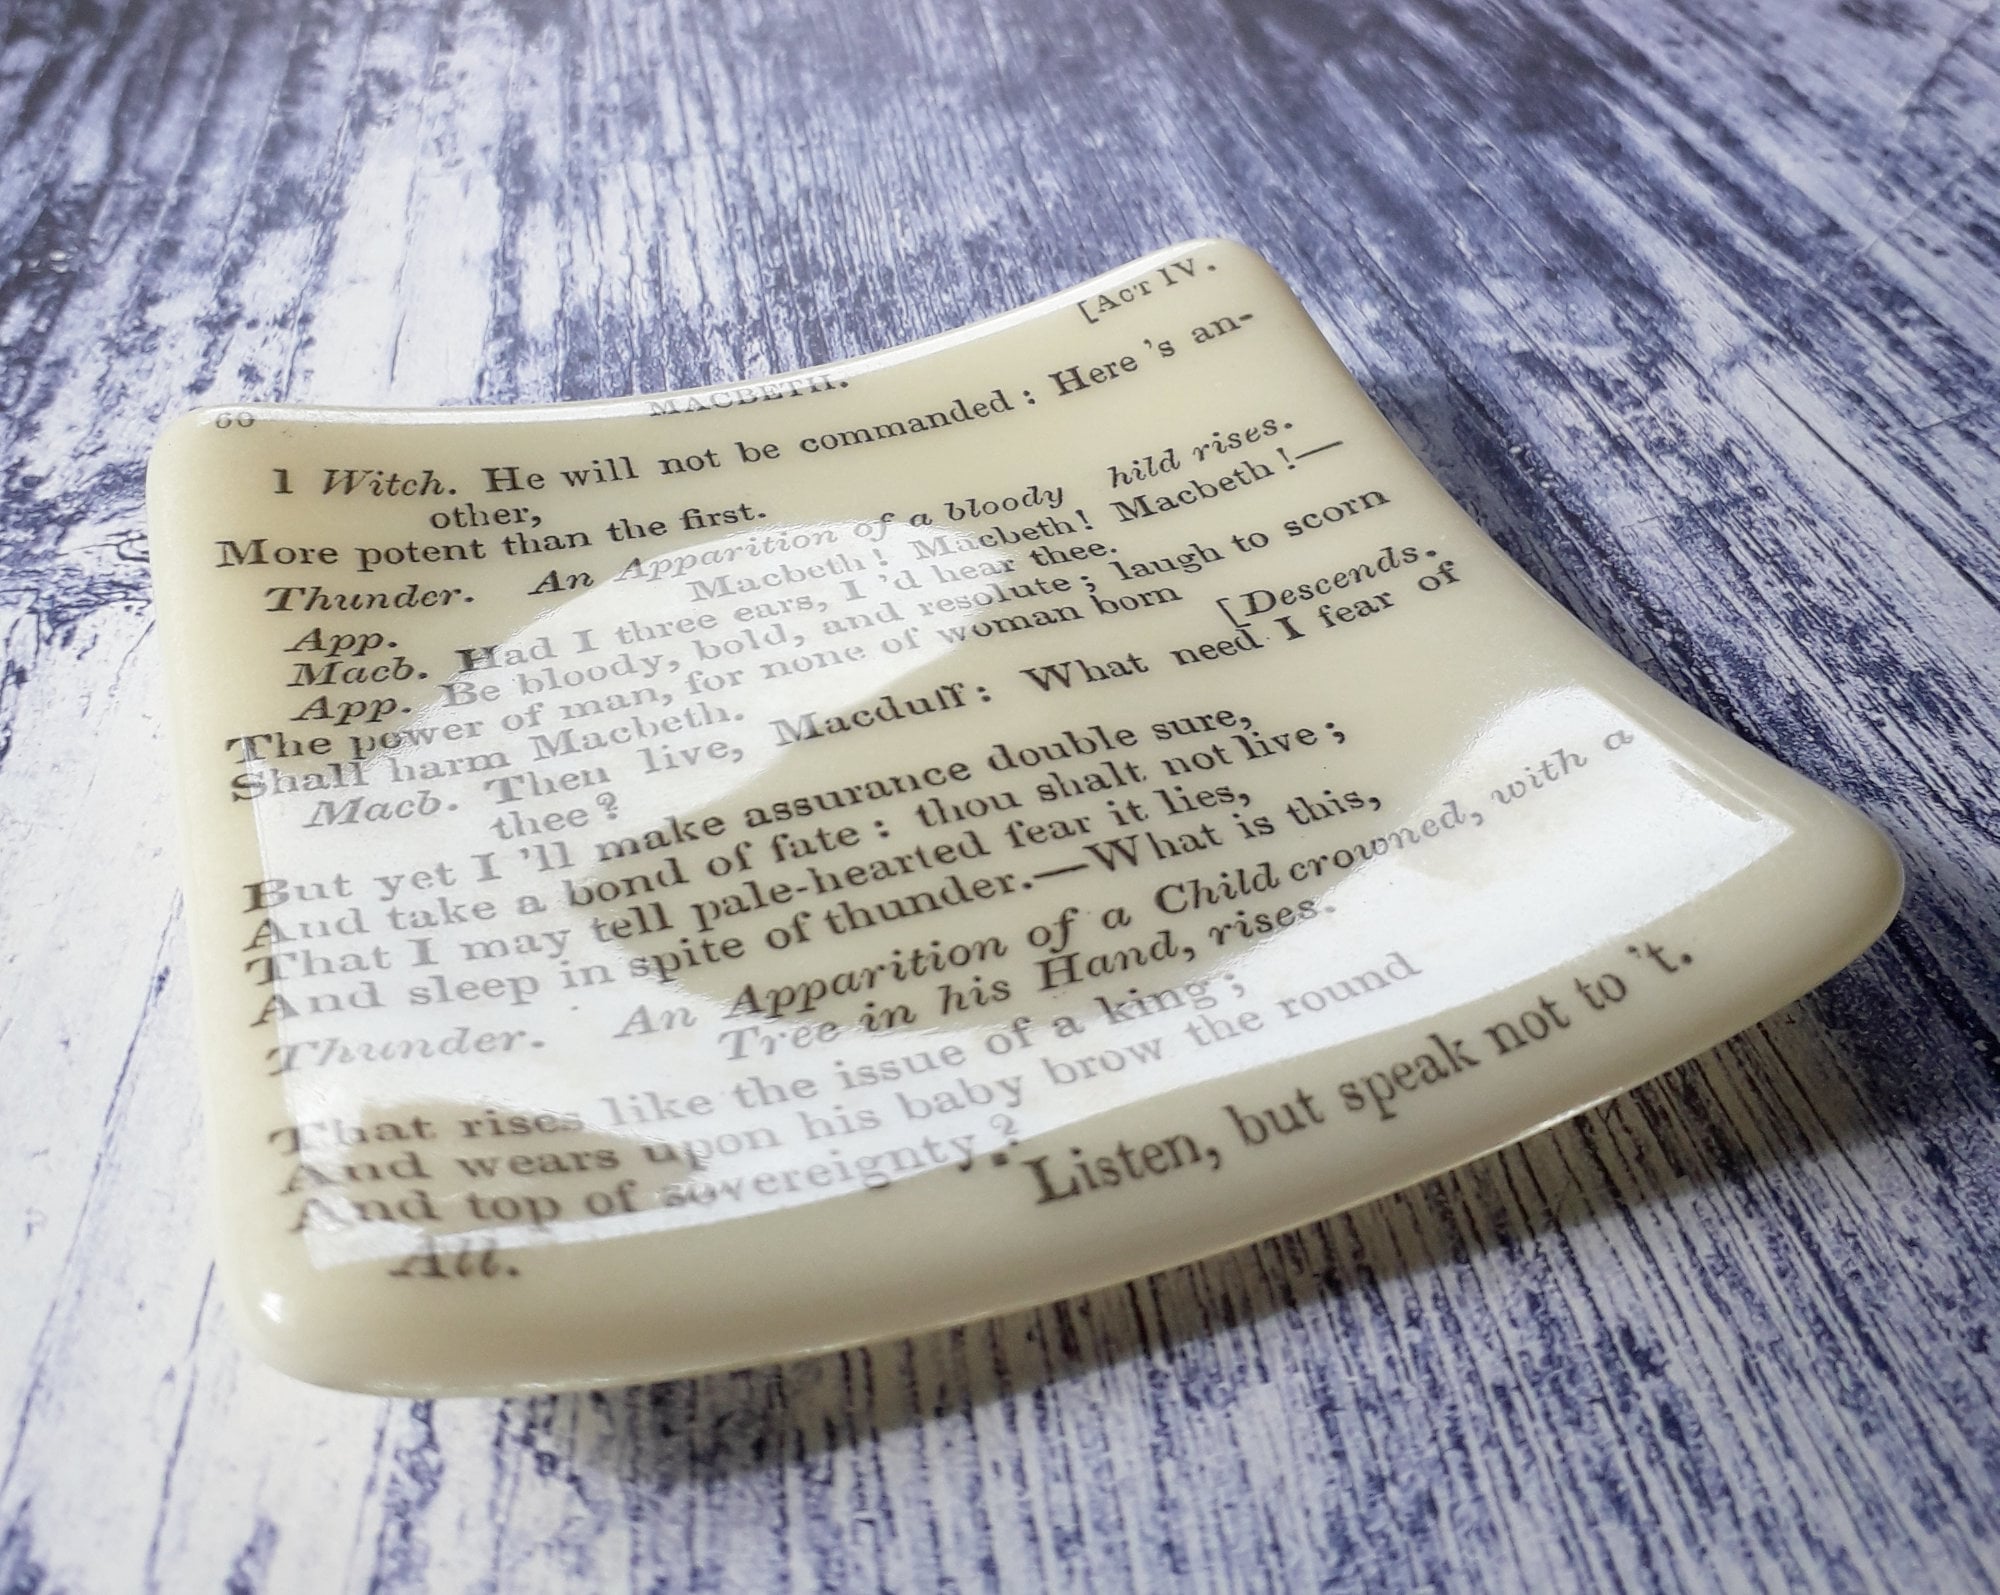 60 MACBETH. [ACT IV.
1 Witch. He will not be commanded: Here's an-
other,
More potent than the first.
Thunder. An Apparition of a bloody hild rises.
App. Macbeth! Macbeth! Macbeth!—
Macb. Had I three ears, I'd hear thee.
App. Be bloody, bold, and resolute; laugh to scorn
The power of man, for none of woman born
Shall harm Macbeth. [Descends.
Macb. Then live, Macduff: What need I fear of
thee?
But yet I'll make assurance double sure,
And take a bond of fate: thou shalt not live;
That I may tell pale-hearted fear it lies,
And sleep in spite of thunder.—What is this,
Thunder. An Apparition of a Child crowned, with a
Tree in his Hand, rises.
That rises like the issue of a king;
And wears upon his baby brow the round
And top of sovereignty?
All. Listen, but speak not to 't.